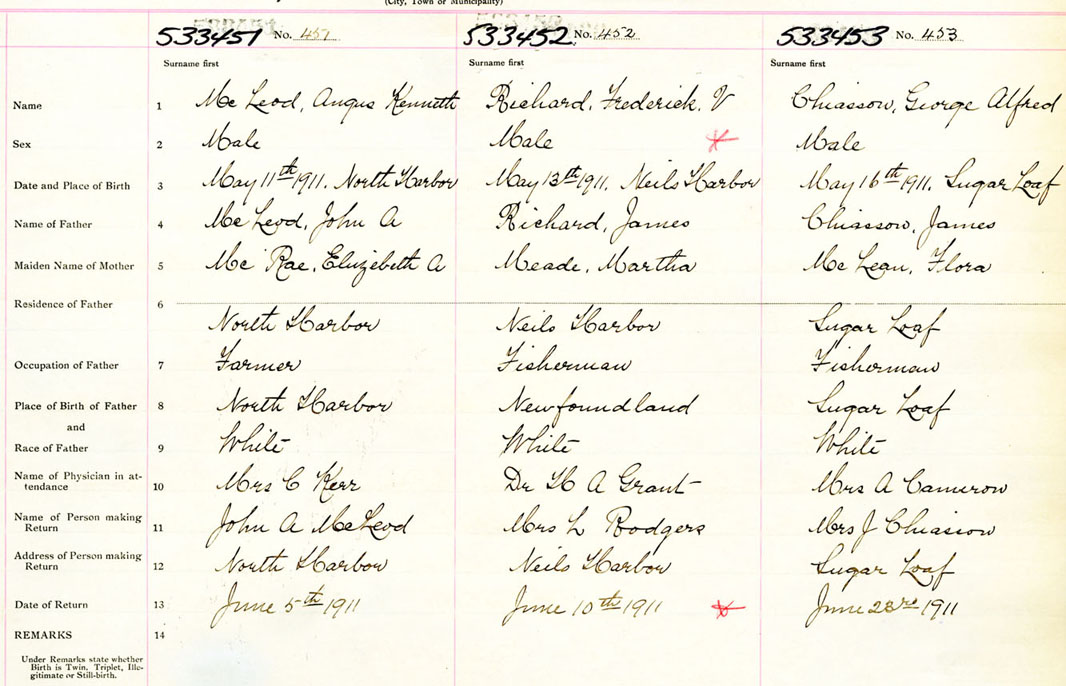 (City, Town or Municipality)
533451 No. 451 533452 No. 452 533453 No. 453
Surname first Surname first Surname first
Name 1 Mc Leod, Angus Kenneth Richard, Frederick. V Chiasson, George Alfred
Sex 2 Male Male Male
Date and Place of Birth 3 May 11th 1911. North Harbor May 13th 1911, Neils Harbor May 16th 1911, Sugar Loaf
Name of Father 4 Mc Leod, John A Richard, James Chiasson, James
Maiden Name of Mother 5 Mc Rae, Elizebeth A Meade, Martha Mc Lean, Flora
Residence of Father 6
North Harbor Neils Harbor Sugar Loaf
Occupation of Father 7 Farmer Fisherman Fisherman
Place of Birth of Father 8 North Harbor Newfoundland Sugar Loaf
and
Race of Father 9 White White White
Name of Physician in at-
tendance 10 Mrs C Kerr Dr H A Grant Mrs A Cameron
Name of Person making
Return 11 John A McLeod Mrs L Roodgers Mrs J Chiasson
Address of Person making
Return 12 North Harbor Neils Harbor Sugar Loaf
Date of Return 13 June 5th 1911 June 10th 1911 June 23rd 1911
REMARKS 14
Under Remarks state whether
Birth is Twin, Triplet, Ille-
gitimate or Still-birth.